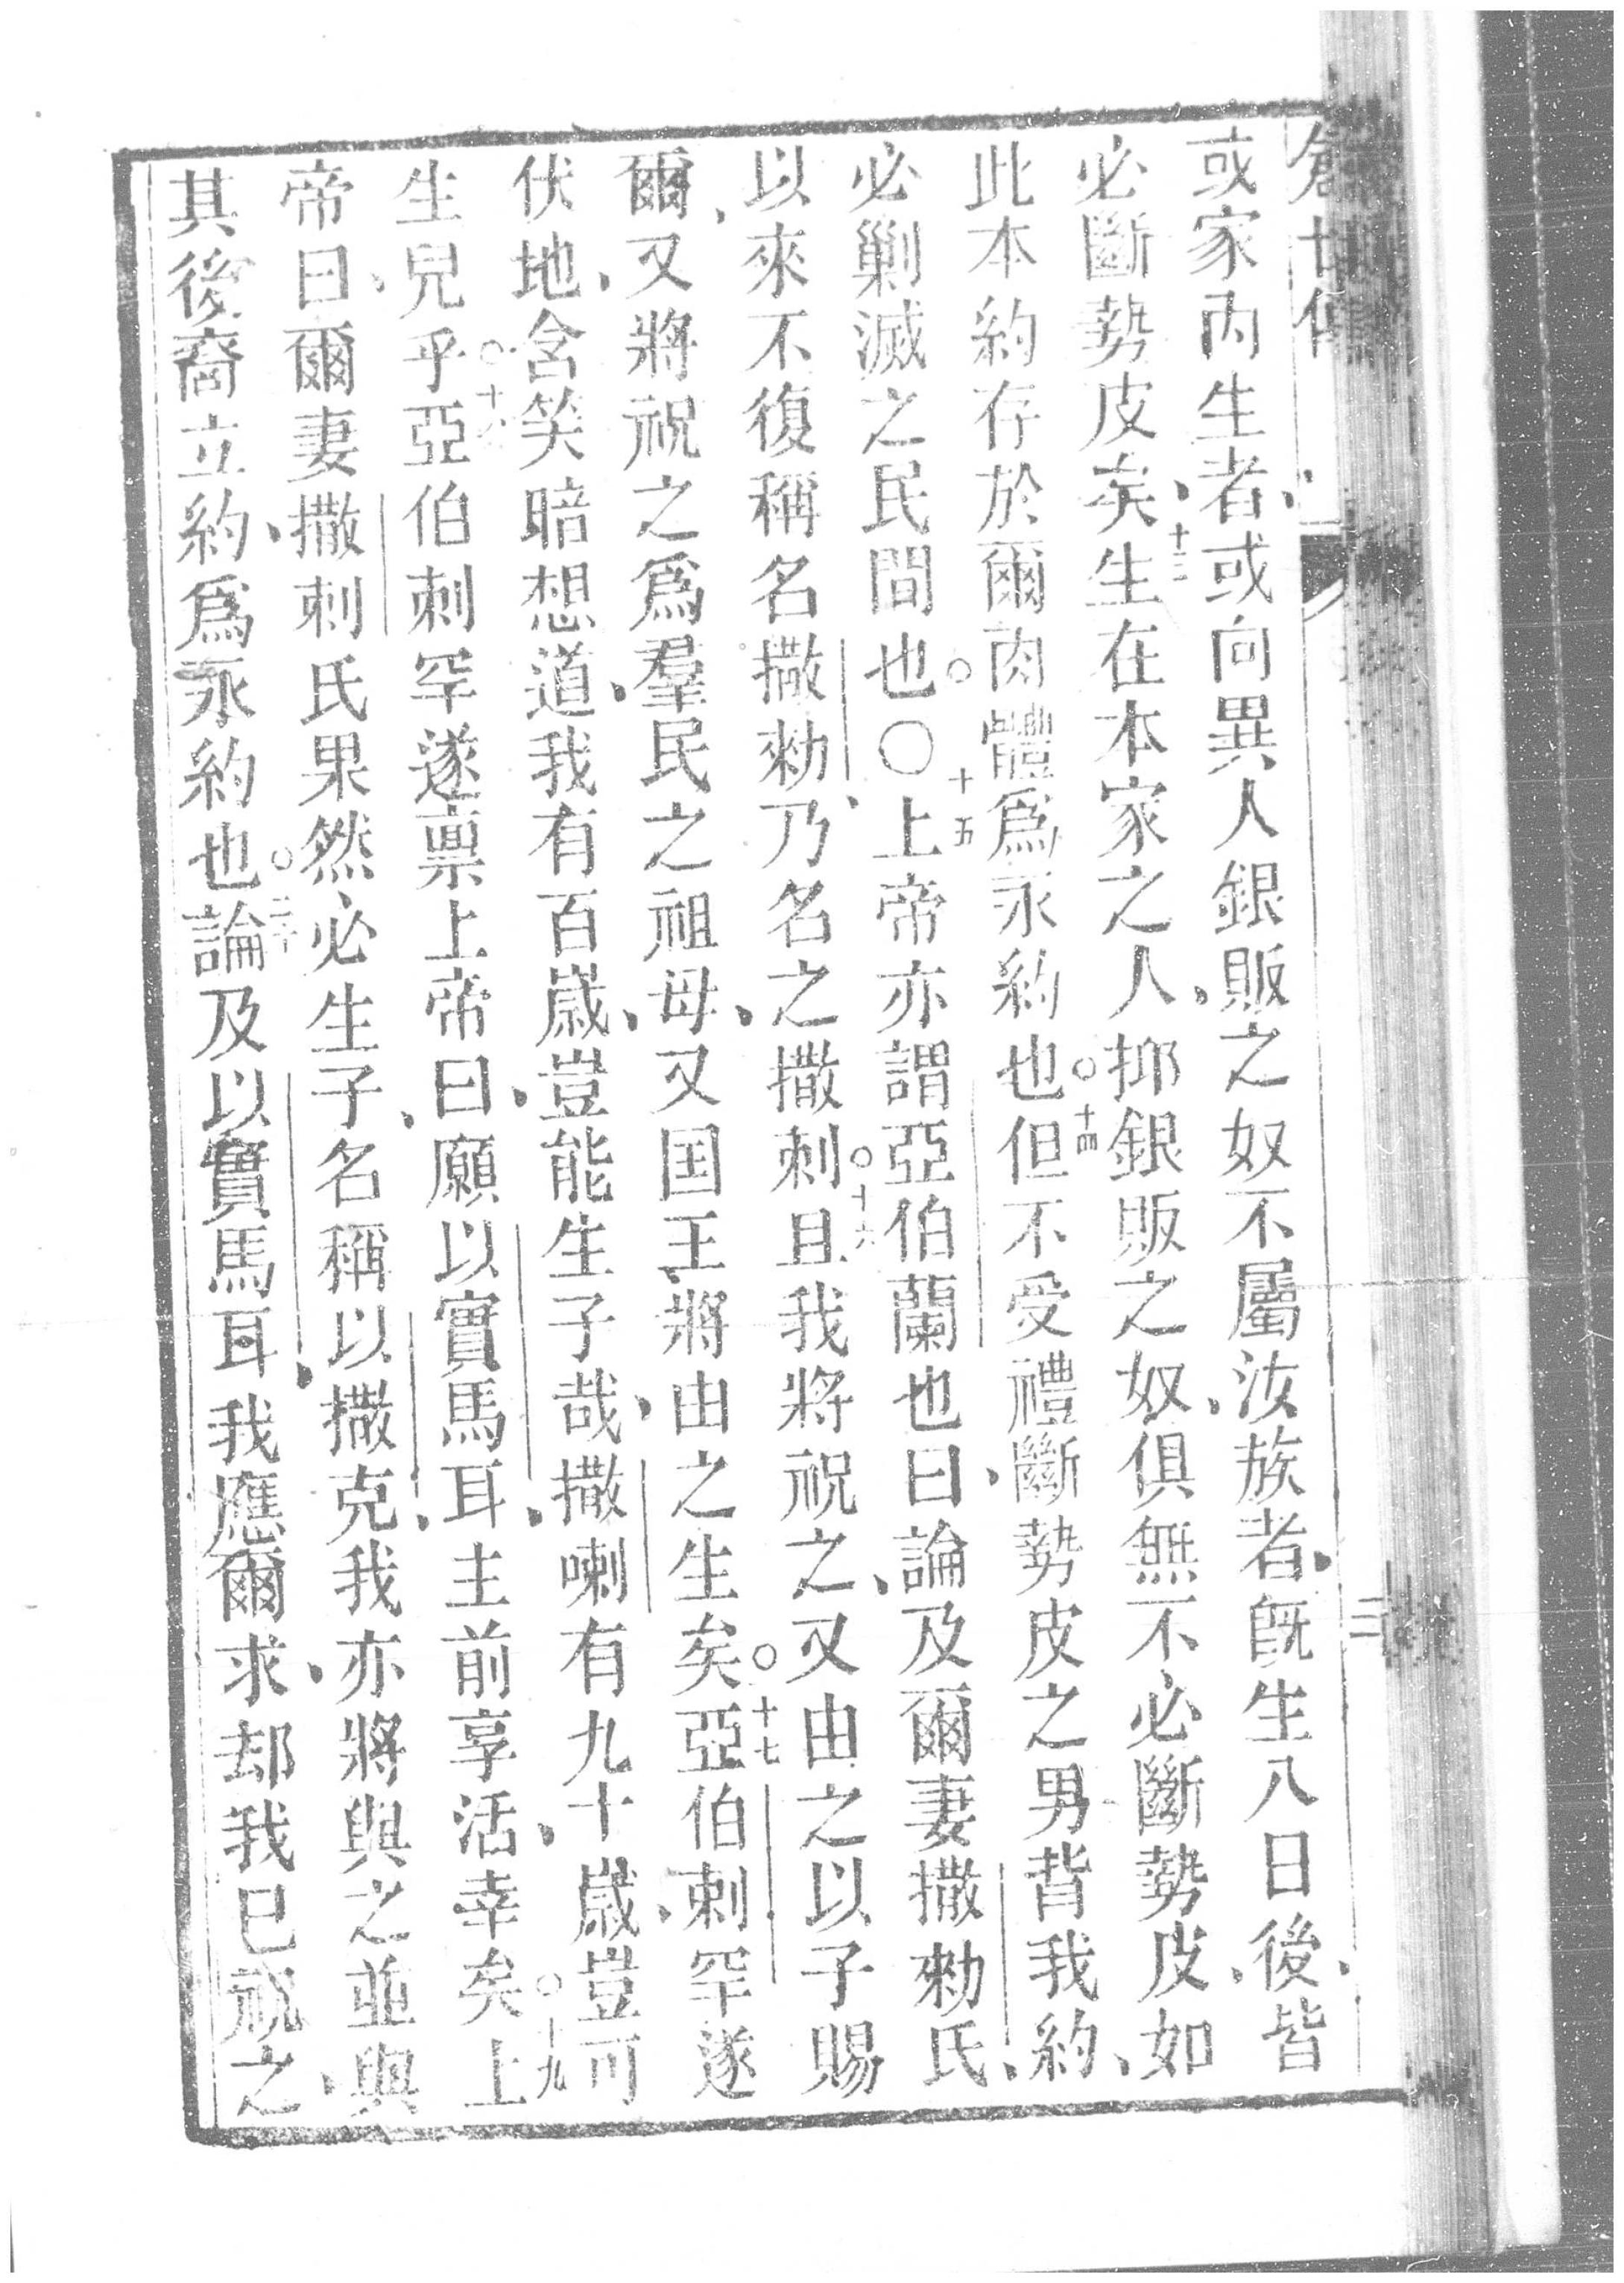 或家內生者、或向異人銀販之奴不屬汝族者、旣生八日後、皆
必斷勢皮矣、十三生在本家之人、抑銀販之奴、俱無不必斷勢皮、如
此本約存於爾肉體爲永約也○十四但不受禮斷勢皮之男背我約、
必剿滅之民間也○〇十五上帝亦謂亞伯蘭也曰、論及爾妻撒勑氏、
以來不復稱名撒勑、乃名之撒剌○十六且我將祝之、又由之以子賜
爾、又將祝之爲羣民之祖母、又国王將由之生矣○十七亞伯剌罕遂
伏地、含笑暗想道、我有百歲、豈能生子哉、撒喇有九十歲、豈可
生兒乎○十八亞伯剌罕遂禀上帝曰、願以實馬耳、主前享活幸矣○十九上
帝曰、爾妻撒剌氏果然必生子、名稱以撒克、我亦將與之並與
其後裔立約、爲永約也○二十論及以實馬耳、我應爾求、却我已祝之、